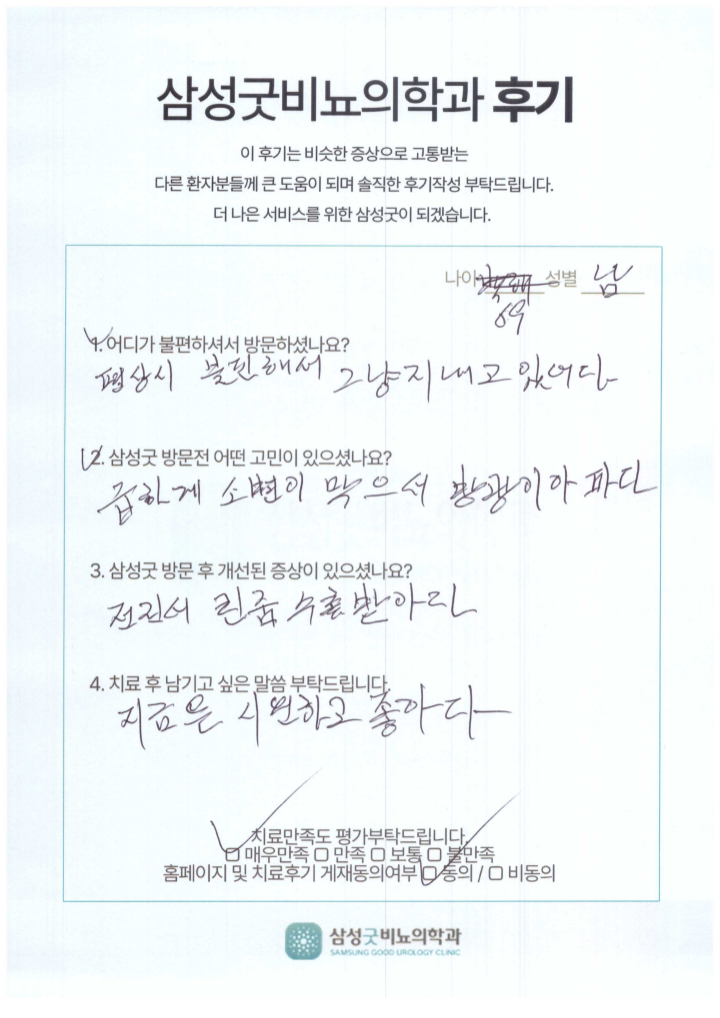 삼성굿비뇨의학과 후기
이 후기는 비슷한 증상으로 고통받는
다른 환자분들께 큰 도움이 되며 솔직한 후기작성 부탁드립니다.
더 나은 서비스를 위한 삼성굿이 되겠습니다.
나이 69 성별 남
1. 어디가 불편하셔서 방문하셨나요?
평상시 불편해서 그냥지내고 있어다
2. 삼성굿 방문전 어떤 고민이 있으셨나요?
급하게 소변이 막으서 방광이아파다
3. 삼성굿 방문 후 개선된 증상이 있으셨나요?
린줍 수술받아다
4. 치료 후 남기고 싶은 말씀 부탁드립니다
지금은 시원하고 좋아다
치료만족도 평가부탁드립니다
☐ 매우만족 ☐ 만족 ☐ 보통 ☐ 불만족
홈페이지 및 치료후기 게재동의여부 ☐ 동의 / ☐ 비동의
삼성굿비뇨의학과
SAMSUNG GOOD UROLOGY CLINIC